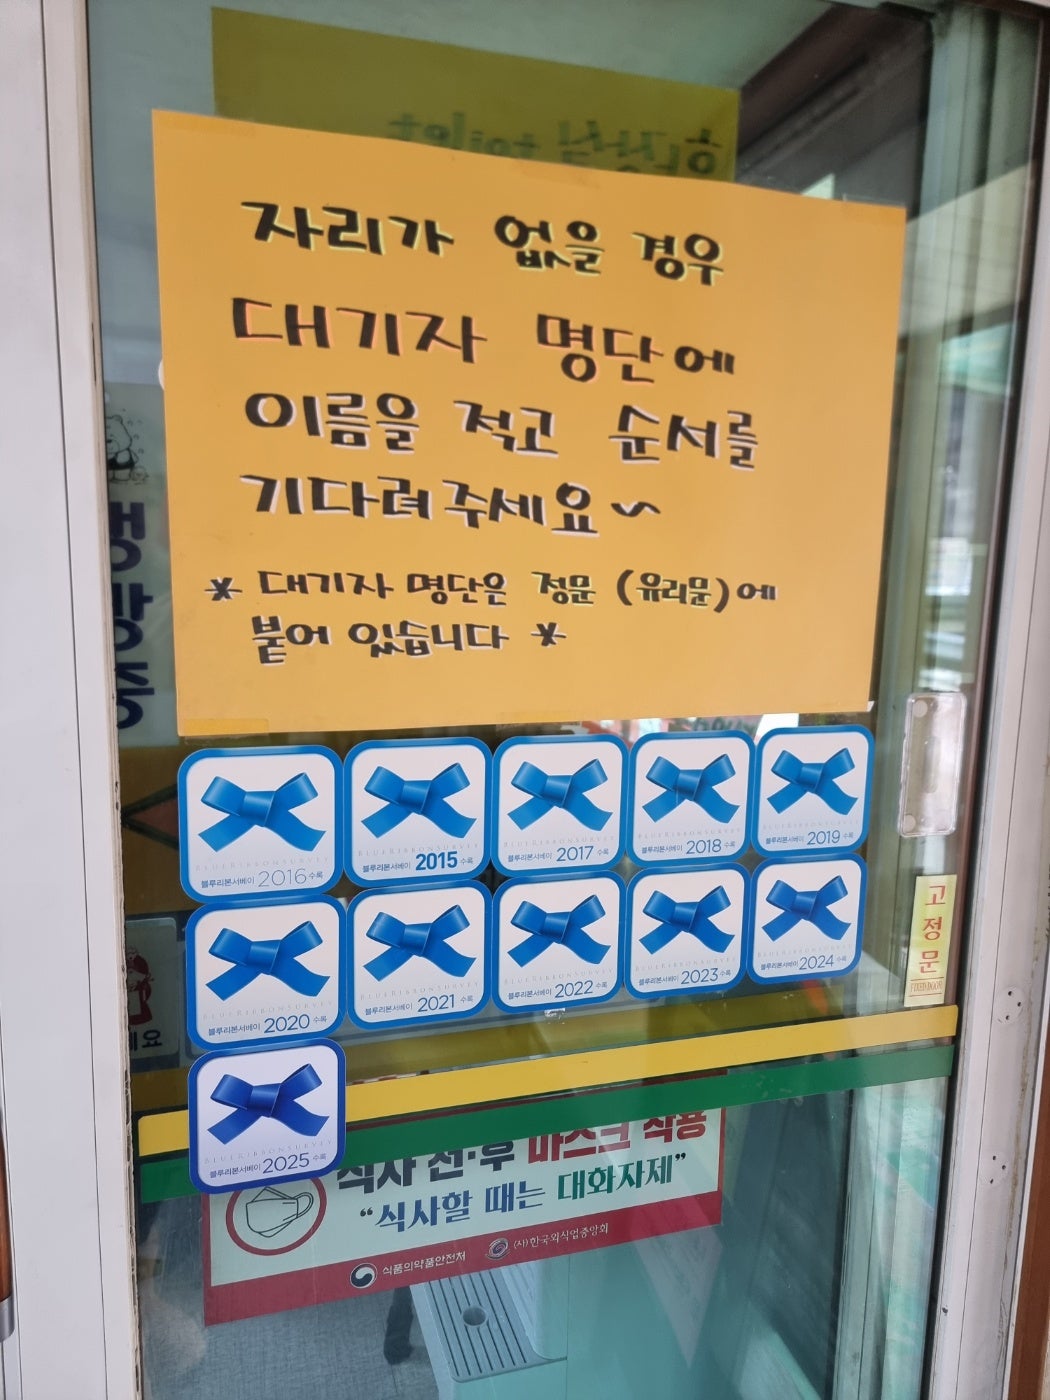 화장실 toilet
자리가 없을 경우
대기자 명단에
이름을 적고 순서를
기다려주세요~
* 대기자 명단은 정문 (유리문)에
붙어 있습니다 *
냉방중
BLUERIBBONSURVEY
블루리본서베이 2016 수록
BLUERIBBONSURVEY
블루리본서베이 2015 수록
BLUERIBBONSURVEY
블루리본서베이 2017 수록
BLUERIBBONSURVEY
블루리본서베이 2018 수록
BLUERIBBONSURVEY
블루리본서베이 2019 수록
BLUERIBBONSURVEY
블루리본서베이 2020 수록
BLUERIBBONSURVEY
블루리본서베이 2021 수록
BLUERIBBONSURVEY
블루리본서베이 2022 수록
BLUERIBBONSURVEY
블루리본서베이 2023 수록
BLUERIBBONSURVEY
블루리본서베이 2024 수록
BLUERIBBONSURVEY
블루리본서베이 2025 수록
고정문
FIXED DOOR
식사 전·후 마스크 착용
“식사할 때는 대화자제”
식품의약품안전처
(사)한국외식업중앙회